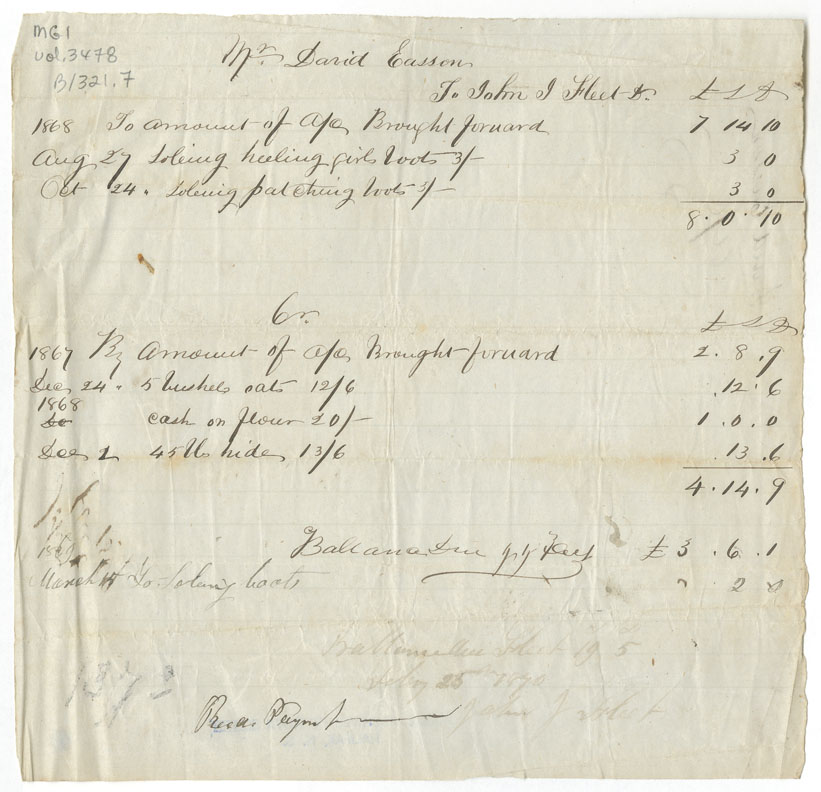 MG1
vol. 3478
B/321.7
Mr. David Easson
To John J Fleet Dr.
£ S D
1868 To amount of A/c Brought forward 7 14 10
Aug 27 Soleing heeling girls boots 3/- 3 0
Oct 24 " Soleing patching boots 3/- 3 0
8. 0. 10
Cr.
£ S D
1867 By Amount of A/c Brought forward 2. 8. 9
Dec 24 " 5 bushels oats 12/6 .12. 6
1868
Do cash on flour 20/- 1. 0. 0
Dec 2 45 lb hide 13/6 .13. 6
4. 14. 9
Ballance Due J J Fleet £ 3. 6. 1
March To Soleing boots 2
Ballance due Fleet 19 5
July 25th 1870
Recd. Payment John J Fleet